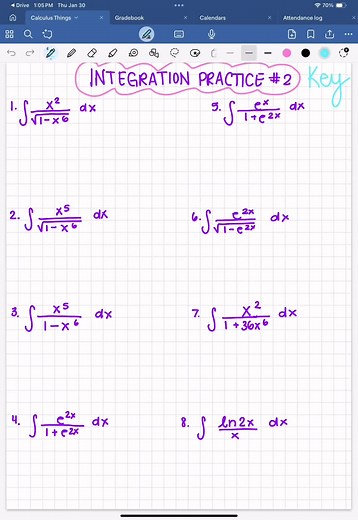 Drive 1:05 PM Thu Jan 30
70%
Calculus Things
Gradebook
Calendars
Attendance log
INTEGRATION PRACTICE #2 Key
1. ∫ x²/√(1-x⁶) dx
2. ∫ x⁵/√(1-x⁶) dx
3. ∫ x⁵/(1-x⁶) dx
4. ∫ e^(2x)/(1+e^(2x)) dx
5. ∫ e^x/(1+e^(2x)) dx
6. ∫ e^(2x)/√(1-e^(2x)) dx
7. ∫ x²/(1+36x⁶) dx
8. ∫ ln2x/x dx